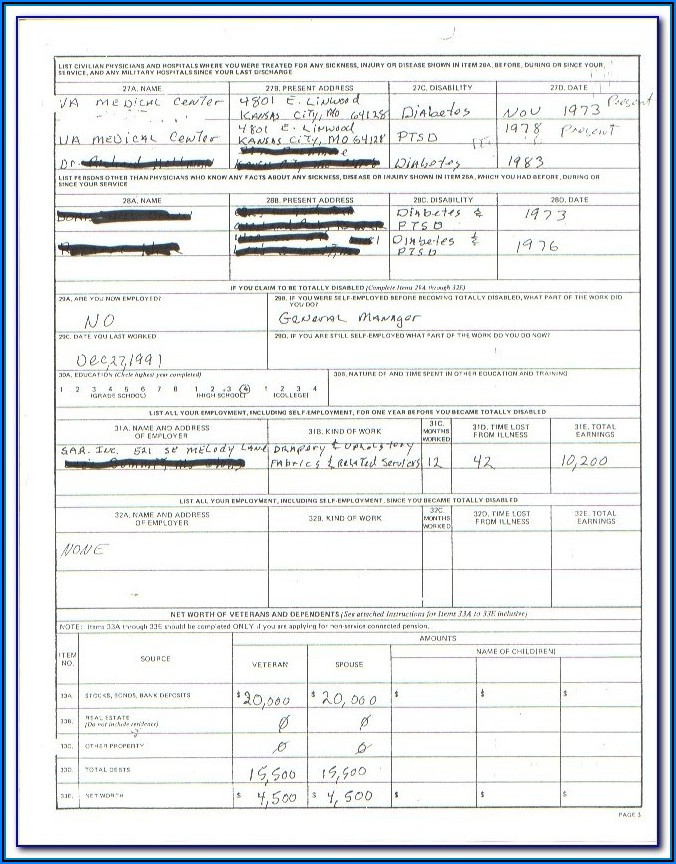 LIST CIVILIAN PHYSICIANS AND HOSPITALS WHERE YOU WERE TREATED FOR ANY SICKNESS, INJURY OR DISEASE SHOWN IN ITEM 26A, BEFORE, DURING OR YOUR
SERVICE, AND ANY MILITARY HOSPITALS SINCE YOUR LAST DISCHARGE
27A. NAME 27B. PRESENT ADDRESS 27C. DISABILITY 27D. DATE
VA MEDICAL CENTER 4801 E. LINWOOD KANSAS CITY, MO 64128 Diabetes NOV 1973 Present
VA MEDICAL CENTER 4801 E. LINWOOD KANSAS CITY, MO 64128 PTSD 1978 Present
Dr. Diabetes 1983
LIST PERSONS OTHER THAN PHYSICIANS WHO KNOW ANY FACTS ABOUT ANY SICKNESS, DISEASE OR INJURY SHOWN IN ITEM 26A, WHICH YOU HAD BEFORE, DURING OR
SINCE YOUR SERVICE
28A. NAME 28B. PRESENT ADDRESS 28C. DISABILITY 28D. DATE
Diabetes & PTSD 1973
Diabetes & PTSD 1976
IF YOU CLAIM TO BE TOTALLY DISABLED (Complete Items 29A through 32E)
29A. ARE YOU NOW EMPLOYED?
NO
29B. IF YOU WERE SELF-EMPLOYED BEFORE BECOMING TOTALLY DISABLED, WHAT PART OF THE WORK DID
YOU DO?
General Manager
29C. DATE YOU LAST WORKED
Dec, 27, 1991
29D. IF YOU ARE STILL SELF-EMPLOYED WHAT PART OF THE WORK DO YOU DO NOW?
30A. EDUCATION (Circle highest year completed)
1 2 3 4 5 6 7 8 1 2 3 4 1 2 3 4
(GRADE SCHOOL) (HIGH SCHOOL) (COLLEGE)
30B. NATURE OF AND TIME SPENT IN OTHER EDUCATION AND TRAINING
LIST ALL YOUR EMPLOYMENT, INCLUDING SELF-EMPLOYMENT, FOR ONE YEAR BEFORE YOU BECAME TOTALLY DISABLED
31A. NAME AND ADDRESS OF EMPLOYER 31B. KIND OF WORK 31C. MONTHS WORKED 31D. TIME LOST FROM ILLNESS 31E. TOTAL EARNINGS
SAR. INC. 521 SE MELODY LANE DRAPERY & UPHOLSTORY
FABRICS & RELATED SERVICES 12 42 10,200
LIST ALL YOUR EMPLOYMENT, INCLUDING SELF-EMPLOYMENT, SINCE YOU BECAME TOTALLY DISABLED
32A. NAME AND ADDRESS OF EMPLOYER 32B. KIND OF WORK 32C. MONTHS WORKED 32D. TIME LOST FROM ILLNESS 32E. TOTAL EARNINGS
NONE
NET WORTH OF VETERANS AND DEPENDENTS (See attached Instructions for Items 33A to 33E inclusive)
NOTE: Items 33A through 33E should be completed ONLY if you are applying for non-service connected pension.
ITEM NO. SOURCE AMOUNTS
VETERAN SPOUSE NAME OF CHILD(REN)
33A. STOCKS, BONDS, BANK DEPOSITS $ 20,000 $ 20,000 $ $ $
33B. REAL ESTATE (Do not include residence) Ø Ø
33C. OTHER PROPERTY Ø Ø
33D. TOTAL DEBTS 15,500 15,500
33E. NET WORTH $ 4,500 $ 4,500 $ $ $
PAGE 3